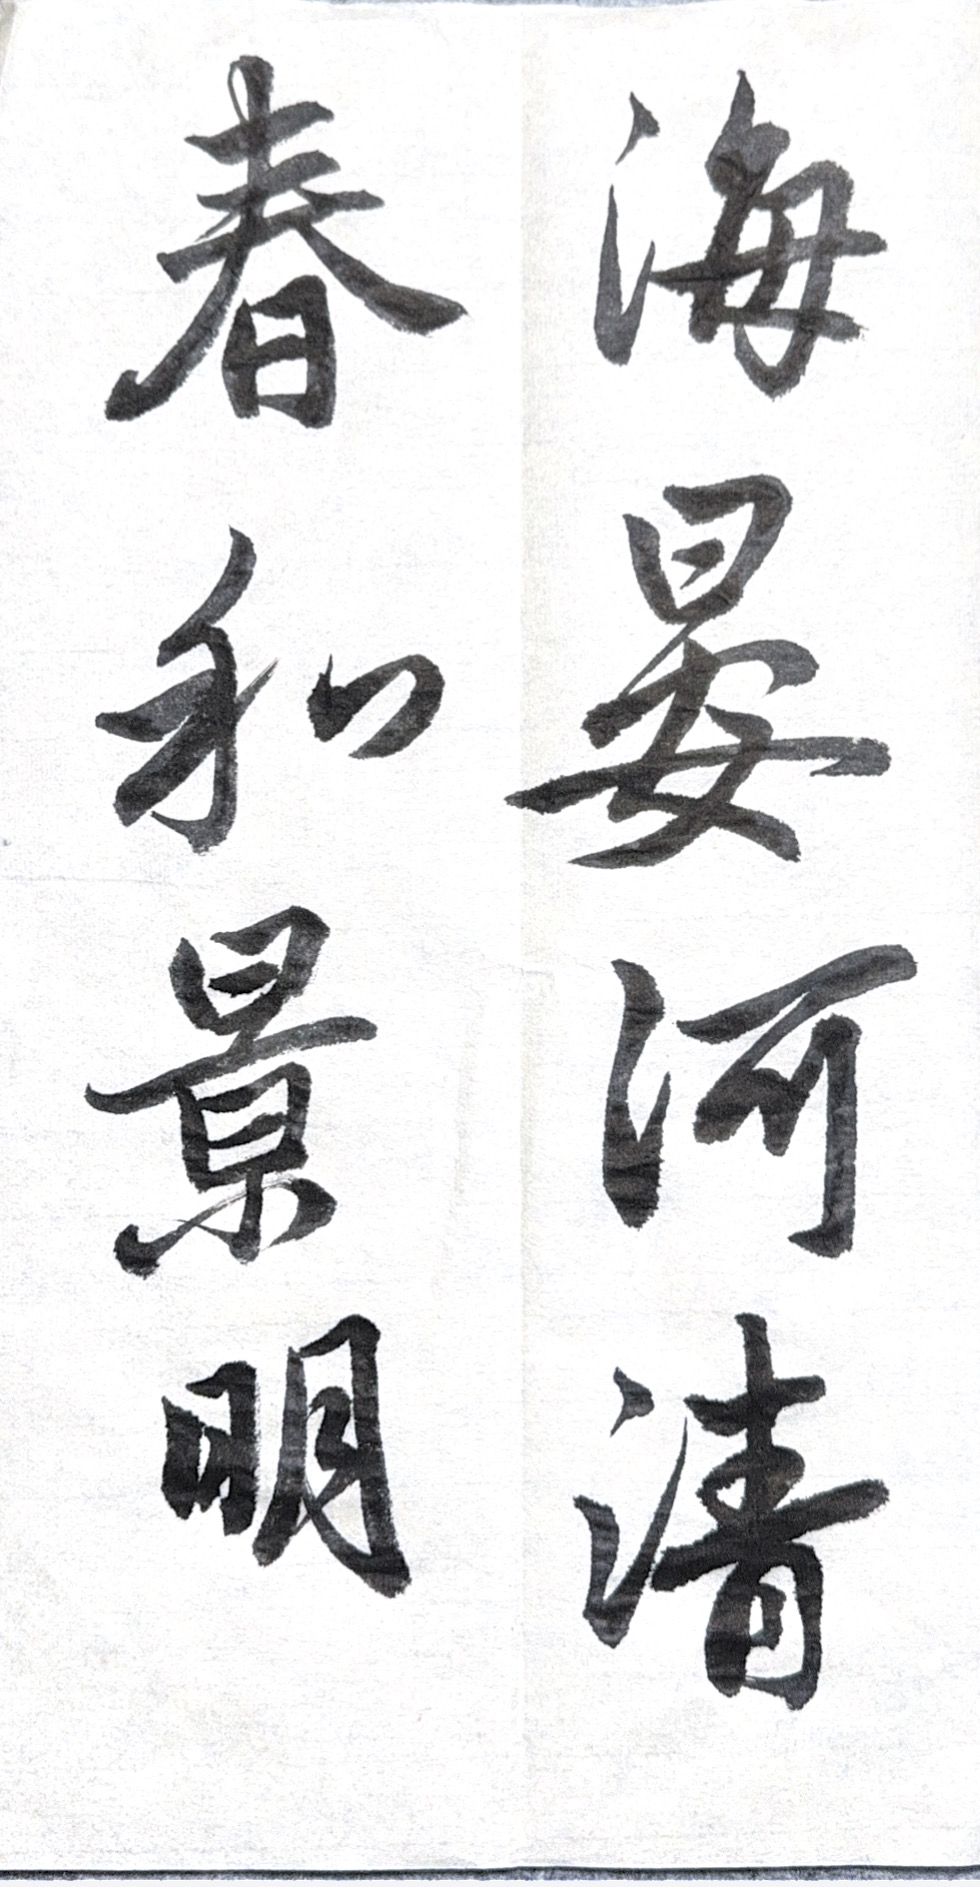 海晏河清
春和景明